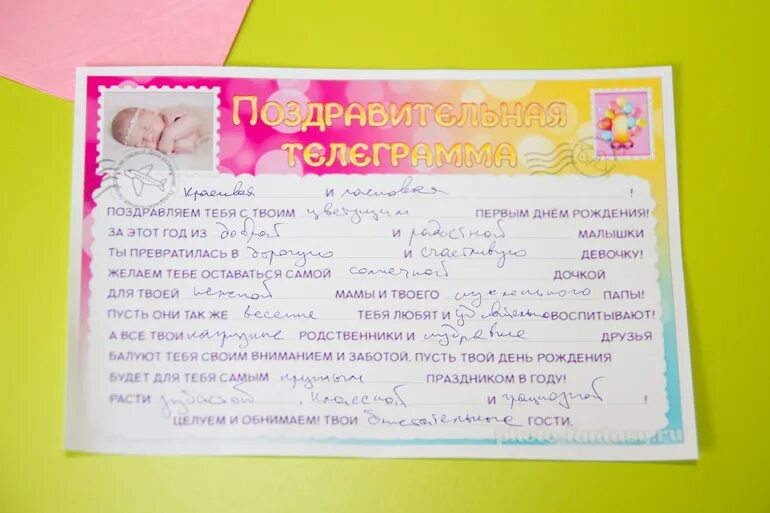 Поздравительная
телеграмма
Красивая и ласковая !
ПОЗДРАВЛЯЕМ ТЕБЯ С ТВОИМ цветущим ПЕРВЫМ ДНЁМ РОЖДЕНИЯ!
ЗА ЭТОТ ГОД ИЗ доброй И радостной МАЛЫШКИ
ТЫ ПРЕВРАТИЛАСЬ В дорогую И счастливую ДЕВОЧКУ!
ЖЕЛАЕМ ТЕБЕ ОСТАВАТЬСЯ САМОЙ солнечной ДОЧКОЙ
ДЛЯ ТВОЕЙ нежной МАМЫ И ТВОЕГО ПАПЫ!
ПУСТЬ ОНИ ТАК ЖЕ весело ТЕБЯ ЛЮБЯТ И ВОСПИТЫВАЮТ!
А ВСЕ ТВОИ РОДСТВЕННИКИ И ДРУЗЬЯ
БАЛУЮТ ТЕБЯ СВОИМ ВНИМАНИЕМ И ЗАБОТОЙ. ПУСТЬ ТВОЙ ДЕНЬ РОЖДЕНИЯ
БУДЕТ ДЛЯ ТЕБЯ САМЫМ крутым ПРАЗДНИКОМ В ГОДУ!
РАСТИ зубастой, классной И грациозной !
ЦЕЛУЕМ И ОБНИМАЕМ! ТВОИ блистательные ГОСТИ.
photo-fantasy.ru